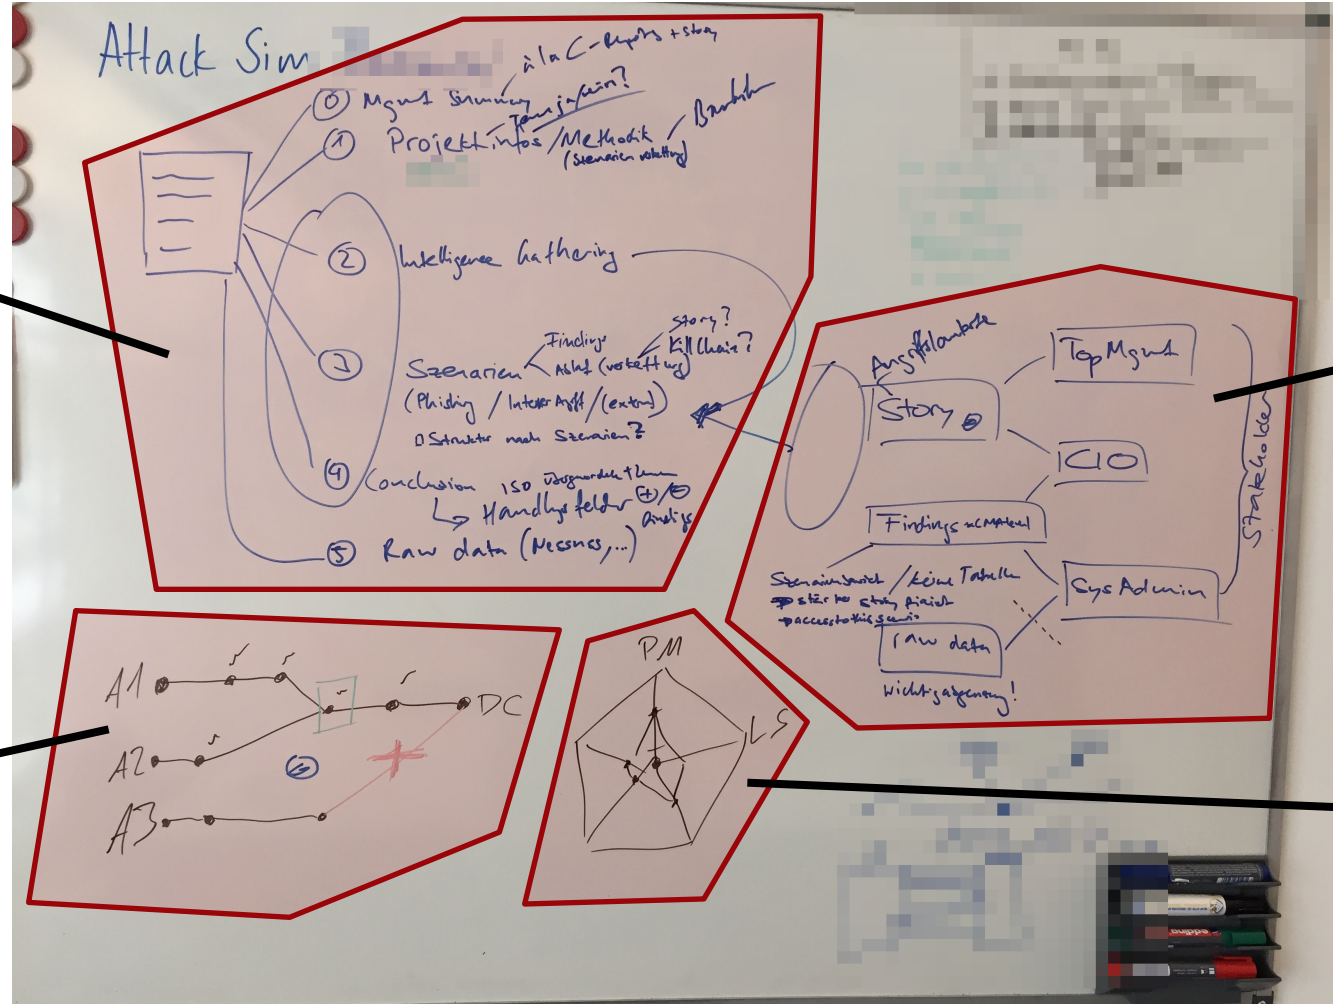 Attack Sim
à la C-Reports + story
0 Mgmt Summary
Team ja/nein?
1 Projektinfos / Methodik
(Szenarien verkettung)
2 Intelligence Gathering
3 Szenarien
Findings
Ablauf (verkettung)
Story?
Killchain?
(Phishing / Interner Angriff / (extern))
Struktur nach Szenarien?
4 Conclusion ISO
Handlungsfelder +/-
Findings
5 Raw data (Nessus, ...)
Angriffslandkarte
Story
Top Mgmt
CIO
Findings
SysAdmin
Stakeholder
/ keine Tabellen
raw data
A1
A2
A3
DC
PM
LS
edding